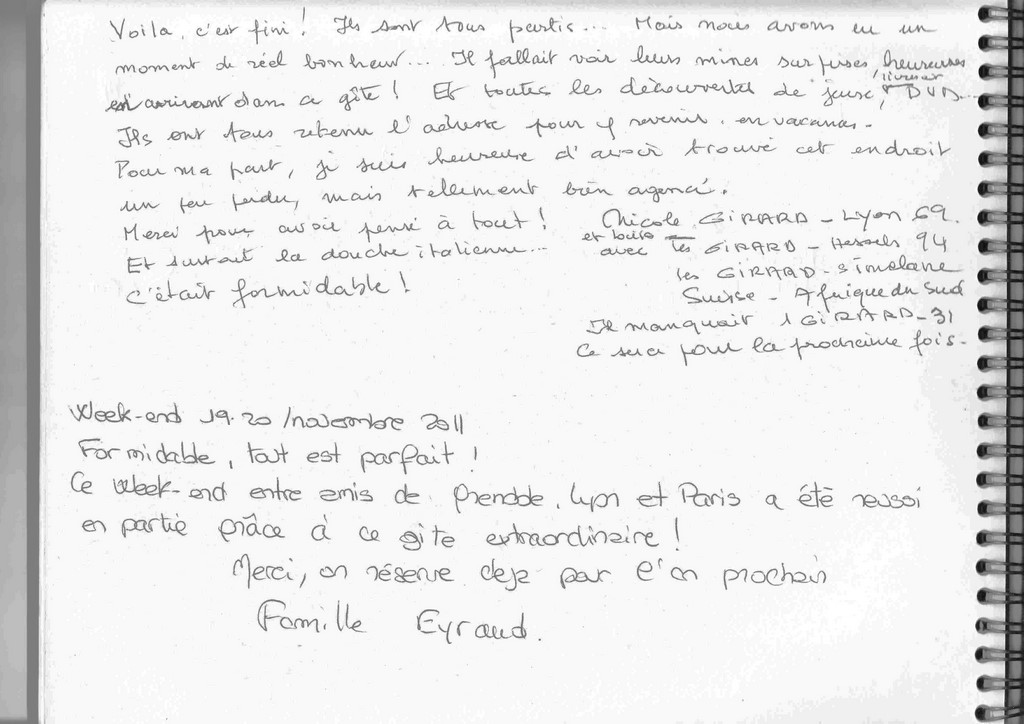 Voila, c'est fini ! Ils sont tous partis... Mais nous avons eu un
moment de réel bonheur... Il fallait voir leurs mines surprises, heureuses
en arrivant dans ce gîte ! Et toutes les découvertes de jeux, livres, DVD...
Ils ont tous retenu l'adresse pour y revenir. en vacances.
Pour ma part, je suis heureuse d'avoir trouvé cet endroit
un peu perdu, mais tellement bien agencé.
Merci pour avoir pensé à tout !
Et surtout la douche italienne...
C'était formidable !
Nicole GIRARD - Lyon 69.
et
avec les GIRARD - 94
les GIRARD - Simolane
Suisse - Afrique du Sud
Il manquait 1 GIRARD - 31
Ce sera pour la prochaine fois -
Week-end 19.20 /novembre 2011
Formidable, tout est parfait !
Ce week-end entre amis de Grenoble, Lyon et Paris a été reussi
en partie grâce à ce gîte extraordinaire !
Merci, on réserve deja pour l'an prochain
Famille Eyraud.